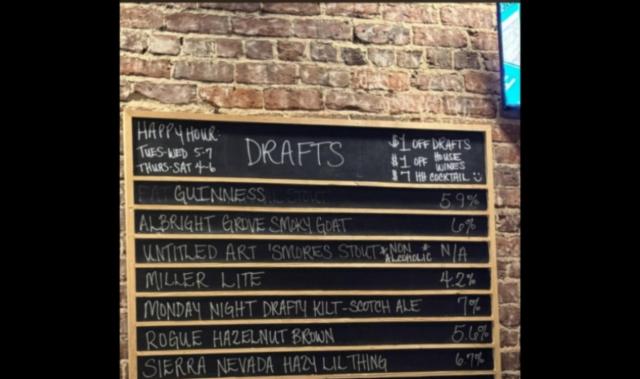 HAPPY HOUR:
TUES-WED 5-7
THURS-SAT 4-6
DRAFTS
$1 OFF DRAFTS
$1 OFF HOUSE WINES
$7 HH COCKTAIL
GUINNESS 5.9%
ALBRIGHT GROVE SMOKY GOAT 6%
UNTITLED ART 'SMORES STOUT *NON ALCOHOLIC* N/A
MILLER LITE 4.2%
MONDAY NIGHT DRAFTY KILT-SCOTCH ALE 7%
ROGUE HAZELNUT BROWN 5.6%
SIERRA NEVADA HAZY LIL THING 6.7%